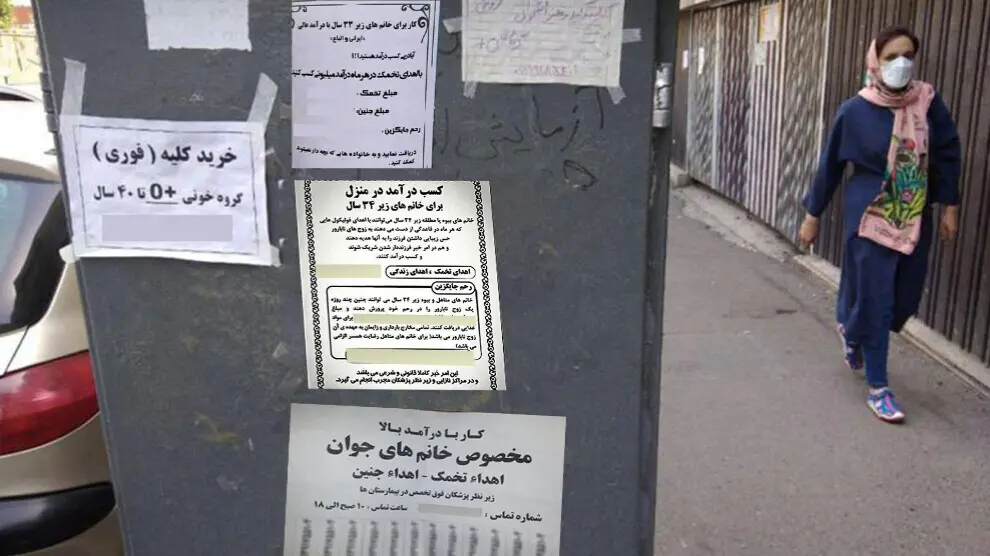 خرید کلیه ( فوری )
گروه خونی +O تا ۴۰ سال
کار برای خانم های زیر ۳۳ سال با درآمد عالی
«ایرانی و اتباع»
آیا دنبال کسب درآمد هستید؟!!
با اهدای تخمک در هر ماه درآمد میلیونی کسب کنید
مبلغ تخمک:
مبلغ جنین:
رحم جایگزین:
دریافت نمایید و به خانواده هایی که بچه دار نمیشوند
کمک کنید.
کسب درآمد در منزل
برای خانم های زیر ۳۴ سال
خانم های بیوه یا مطلقه زیر ۳۴ سال می‌توانند با اهدای فولیکول هایی
که هر ماه در قاعدگی از دست می دهند به زوج های نابارور
حس زیبایی داشتن فرزند را به آنها هدیه دهند
و هم در امر خیر فرزنددار شدن شریک شوند
و کسب درآمد کنند.
اهدای تخمک ، اهدای زندگی
رحم جایگزین
خانم های متاهل و بیوه زیر ۳۴ سال می توانند جنین چند روزه
یک زوج نابارور را در رحم خود پرورش دهند و مبلغ
برای مواد
غذایی دریافت کنند. تمامی مخارج بارداری و زایمان به عهده ی آن
زوج نابارور می باشد( برای خانم های متاهل رضایت همسر الزامی
می باشد)
این امر خیر کاملا قانونی و شرعی می باشد
و در مراکز نازایی و زیر نظر پزشکان مجرب انجام می گیرد.
کار با درآمد بالا
مخصوص خانم های جوان
اهداء تخمک - اهداء جنین
زیر نظر پزشکان فوق تخصص در بیمارستان ها
شماره تماس : ساعت تماس : ۱۰ صبح الی ۱۸
آزمایش